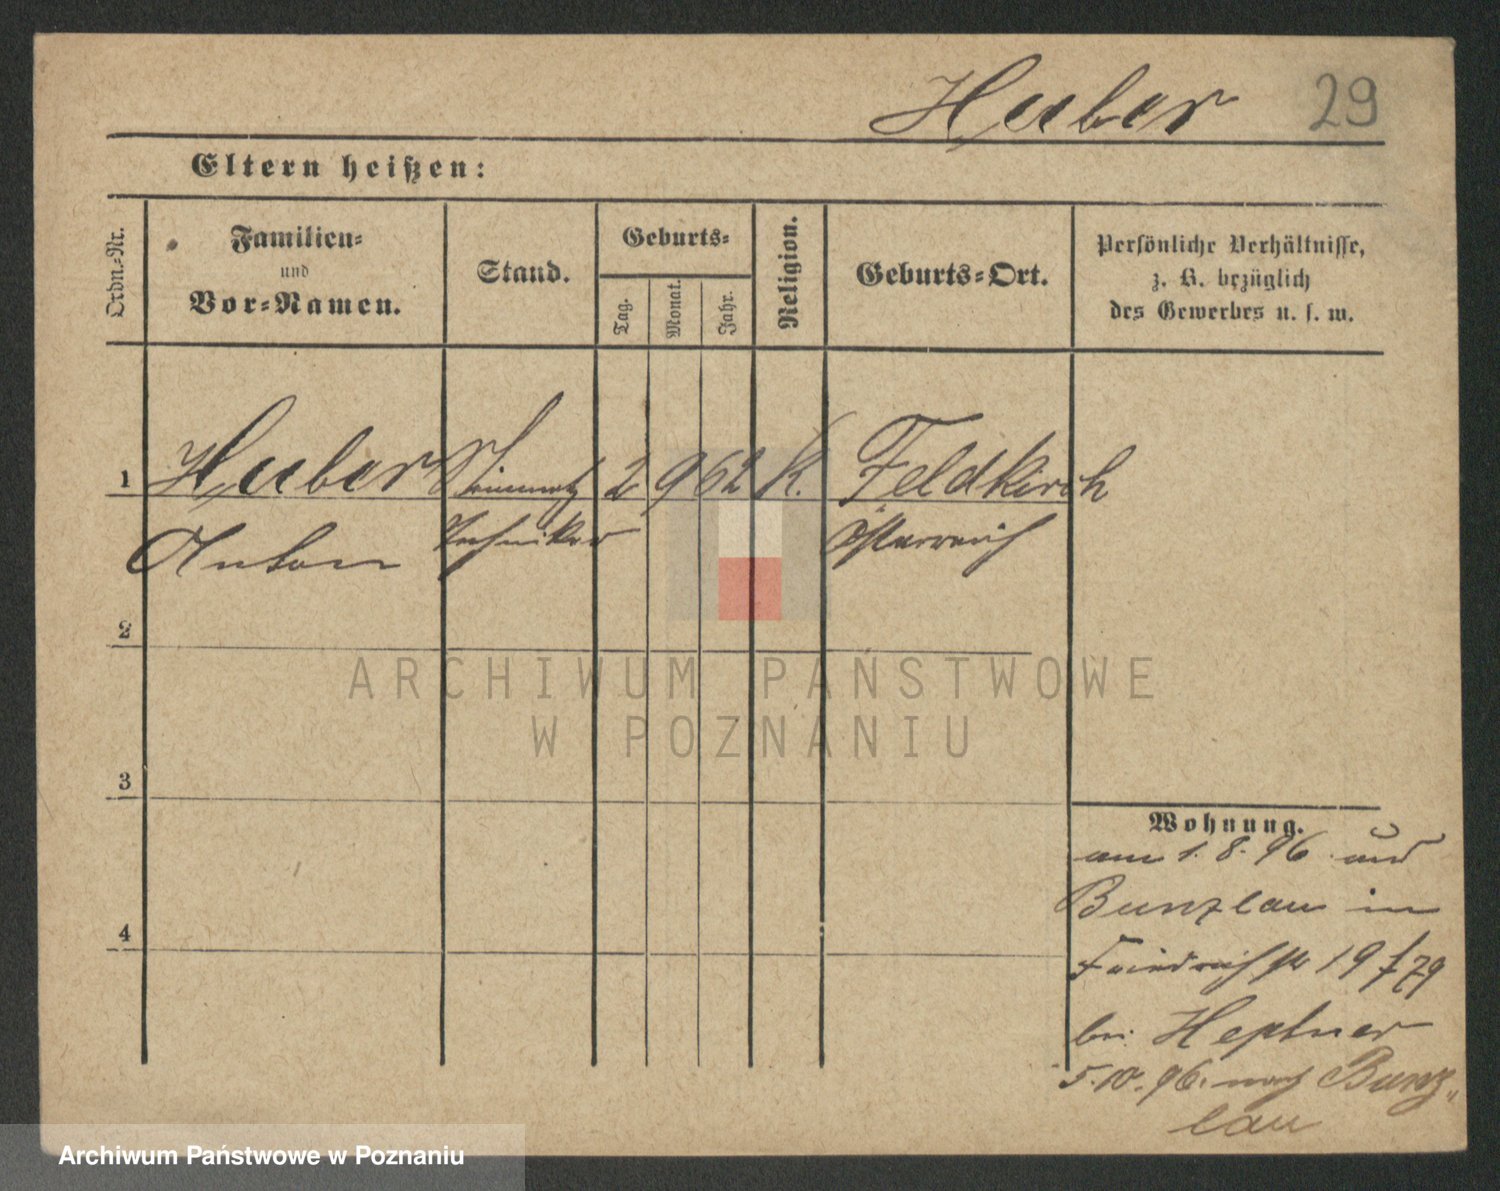 Huber 29
Eltern heißen:
Ordn.-Nr.
Familien-
und
Vor-Namen.
Stand.
Geburts-
Tag.
Monat.
Jahr.
Religion.
Geburts-Ort.
Persönliche Verhältnisse,
z. B. bezüglich
des Gewerbes u. s. w.
1 Huber Steinmetz 2 9 62 K. Feldkirch
Anton Techniker Österreich
2
3
4
Wohnung.
am 1. 8. 96 aus
Bunzlau in
Friedrichstr 19
bei Heptner
5.10.96. nach Bunz„
lau
ARCHIWUM PAŃSTWOWE
W POZNANIU
Archiwum Państwowe w Poznaniu